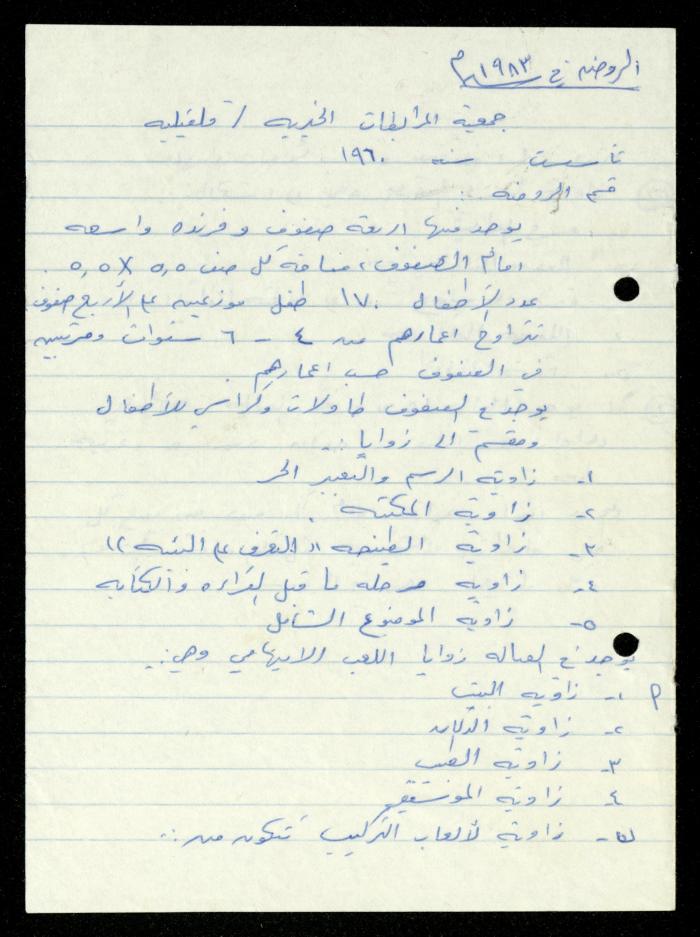 الروضه في ١٩٨٣م
جمعية المرابطات الخيريه / قلقيليه
تأسست سنه ١٩٦٠
قسم الروضه :
يوجد فيها اربعة صفوف وفرنده واسعه
امام الصفوف، مسافة كل صف ٥,٥ X ٥,٥ .
عدد الأطفال ١٧٠ طفل موزعين على الأربع صفوف
تتراوح اعمارهم من ٤ - ٦ سنوات ومرتبين
في الصفوف حسب اعمارهم .
يوجد في الصفوف طاولات وكراسي للأطفال
ومقسم الى زوايا :-
١- زاوية الرسم والتعبير الحر
٢- زاوية المكتبه .
٣- زاوية الطبيعه "التعرف على البيئه"
٤- زاوية مرحله ما قبل القراءه والكتابه
٥- زاوية الموضوع الشامل
يوجد في الصاله زوايا اللعب الايهامي وهي :-
م ١- زاوية البيت
٢- زاوية الدكان
٣- زاوية الطب
٤- زاوية الموسيقى
٥- زاوية لألعاب التركيب تتكون من :-